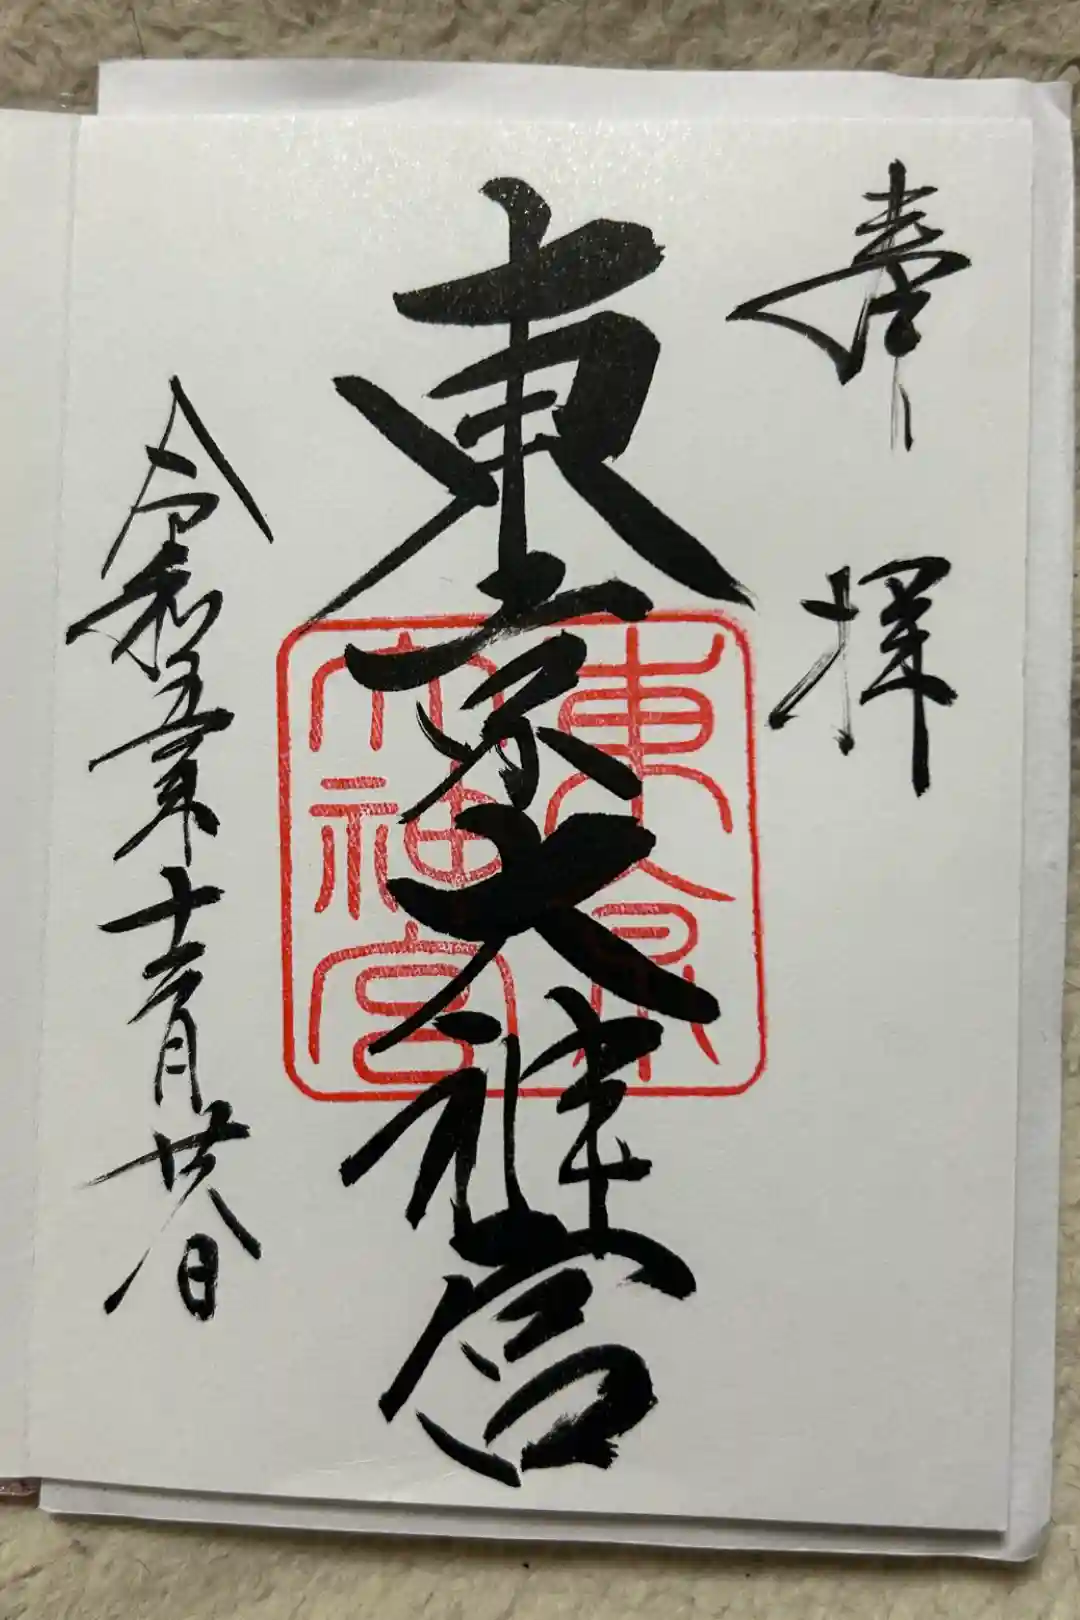 奉拝
東京大神宮
令和五年十二月廿八日
東京
大神宮